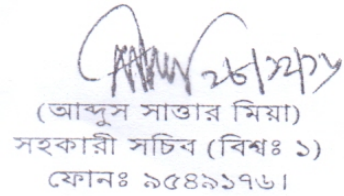 ২৮/১২/১৫
(আব্দুস সাত্তার মিয়া)
সহকারী সচিব (বিশ্বঃ ১)
ফোনঃ ৯৫৪৯১৭৬।